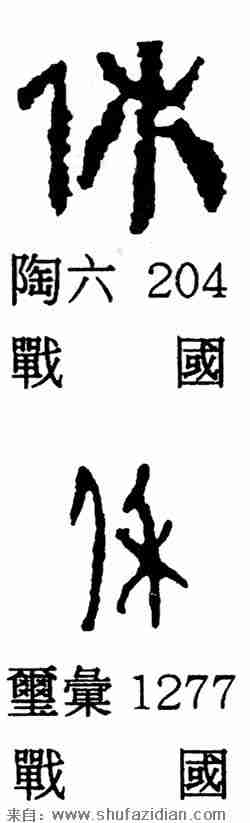 休
陶六 204
戰 國
休
璽彙 1277
戰 國
来自：www.shufazidian.com